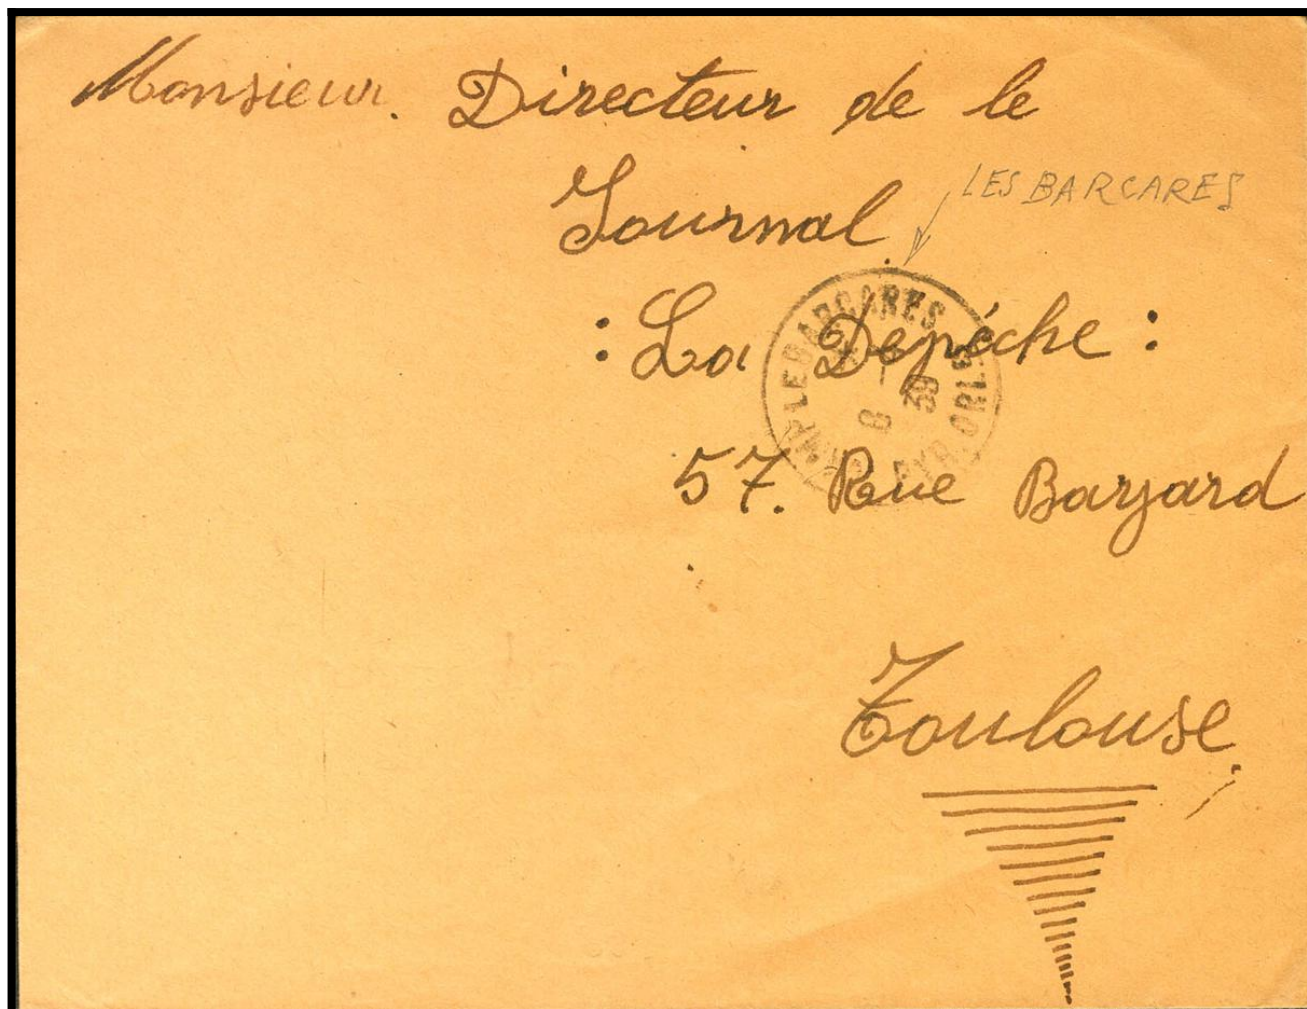 Monsieur. Directeur de le
Journal
LES BARCARES
: La Depéche :
CAMP LE BARCARES PYR. ORLES
8 39
57. Rue Baryard
Toulouse,